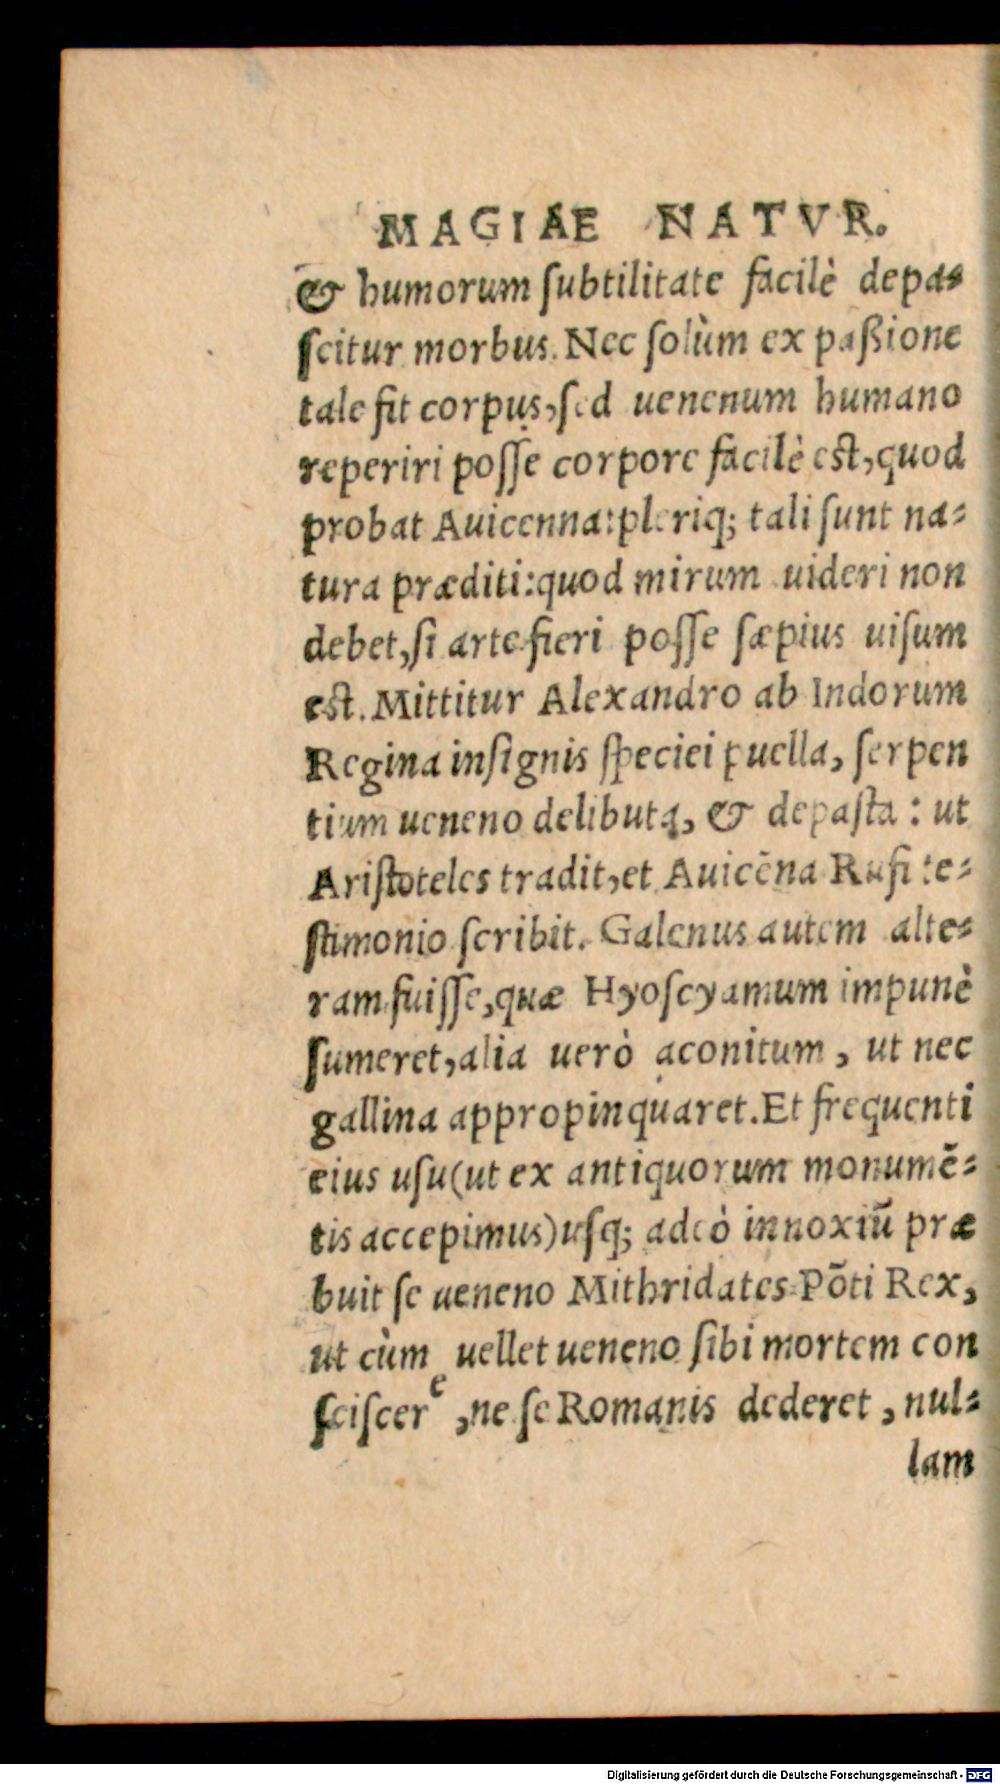 MAGIAE NATVR.
& humorum ſubtilitate facilè depa⸗
ſcitur morbus. Nec ſolùm ex paßione
tale fit corpus, ſed uenenum humano
reperiri poſſe corpore facilè est, quod
probat Auicenna: pleriq; tali ſunt na⸗
tura præditi: quod mirum uideri non
debet, ſi arte fieri poſſe ſæpius uiſum
est. Mittitur Alexandro ab Indorum
Regina inſignis ſpeciei puella, ſerpen
tium ueneno delibuta, & depaſta: ut
Ariſtoteles tradit, et Auicēna Rufi te⸗
ſtimonio ſcribit. Galenus autem alte⸗
ram fuiſſe, quæ Hyoſcyamum impunè
ſumeret, alia uerò aconitum, ut nec
gallina appropinquaret. Et frequenti
eius uſu (ut ex antiquorum monumē⸗
tis accepimus) uſq; adeò innoxiū præ
buit ſe ueneno Mithridates Pōti Rex,
ut cùm uellet ueneno ſibi mortem con
ſciſcere, ne ſe Romanis dederet, nul⸗
lam
Digitalisierung gefördert durch die Deutsche Forschungsgemeinschaft - DFG